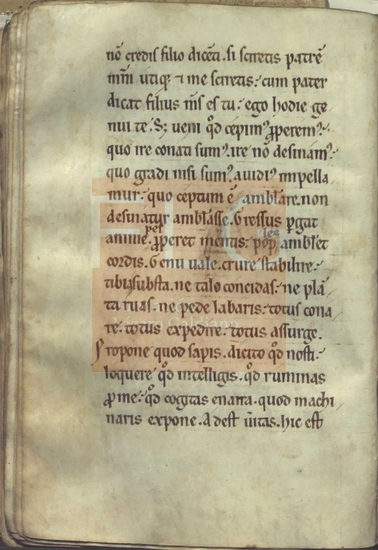 nō credis filio dicēti. si sciretis patrē
mm̄ utiq; ⁊ me sciretis. cum pater
dicat filius ms̄ es tu. ego hodie ge
nui te. S; ueni qd̄ cepim᷒ ꝓperem᷒.
quo ire conati sum᷒. ire nō desinam᷒.
quo gradi nisi sum᷒. auidi᷒ impella
mur. quo ceptum ē amblāre. non
desinatur amblāsse. Gressus ꝑgat
anime. ꝓperet mentis. amblet
cordis. Genu uale. crure stabilire.
tibia substa. ne talo concidas. ne plā
ta ruas. ne pede labaris. totus cona
re. totus expedire. totus assurge.
Propone quod sapis. dicito qd̄ nosti.
loquere qd̄ intelligis. qd̄ ruminas
ꝓme. qd̄ cogitas enarra. quod machi
naris expone. Adest ūitas. hic est